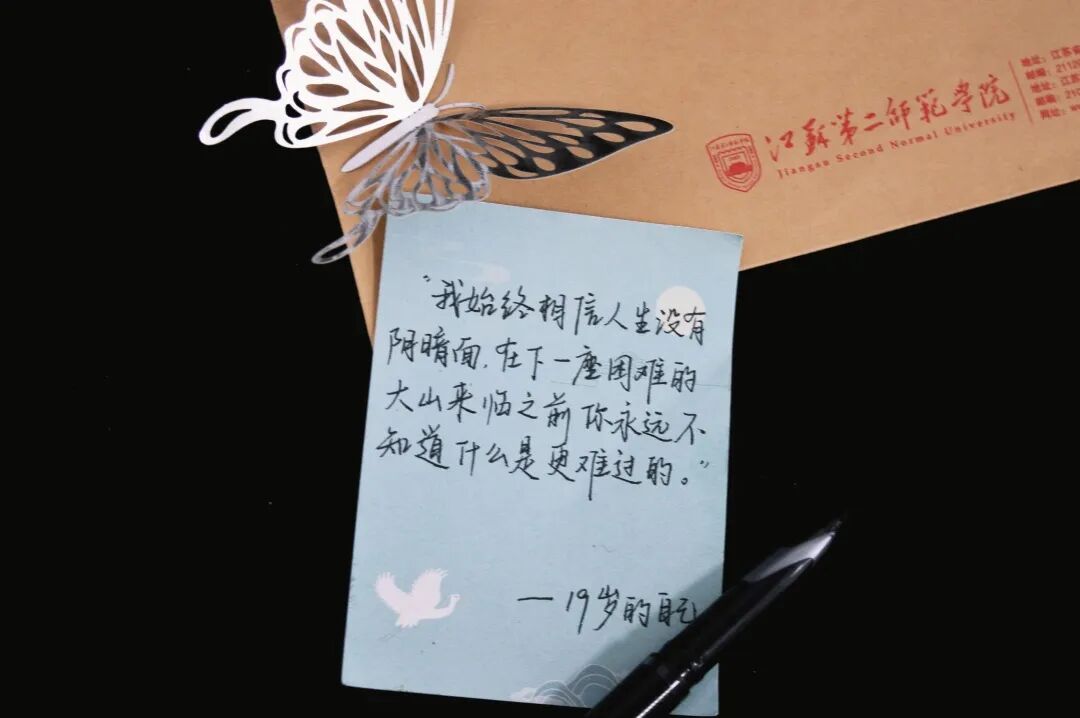 江苏第二师范学院
Jiangsu Second Normal University
地址：江苏省
邮编：2112
地址：江苏
邮编：210
网址：w
“我始终相信人生没有
阴暗面，在下一座困难的
大山来临之前你永远不
知道什么是更难过的。”
—19岁的自己